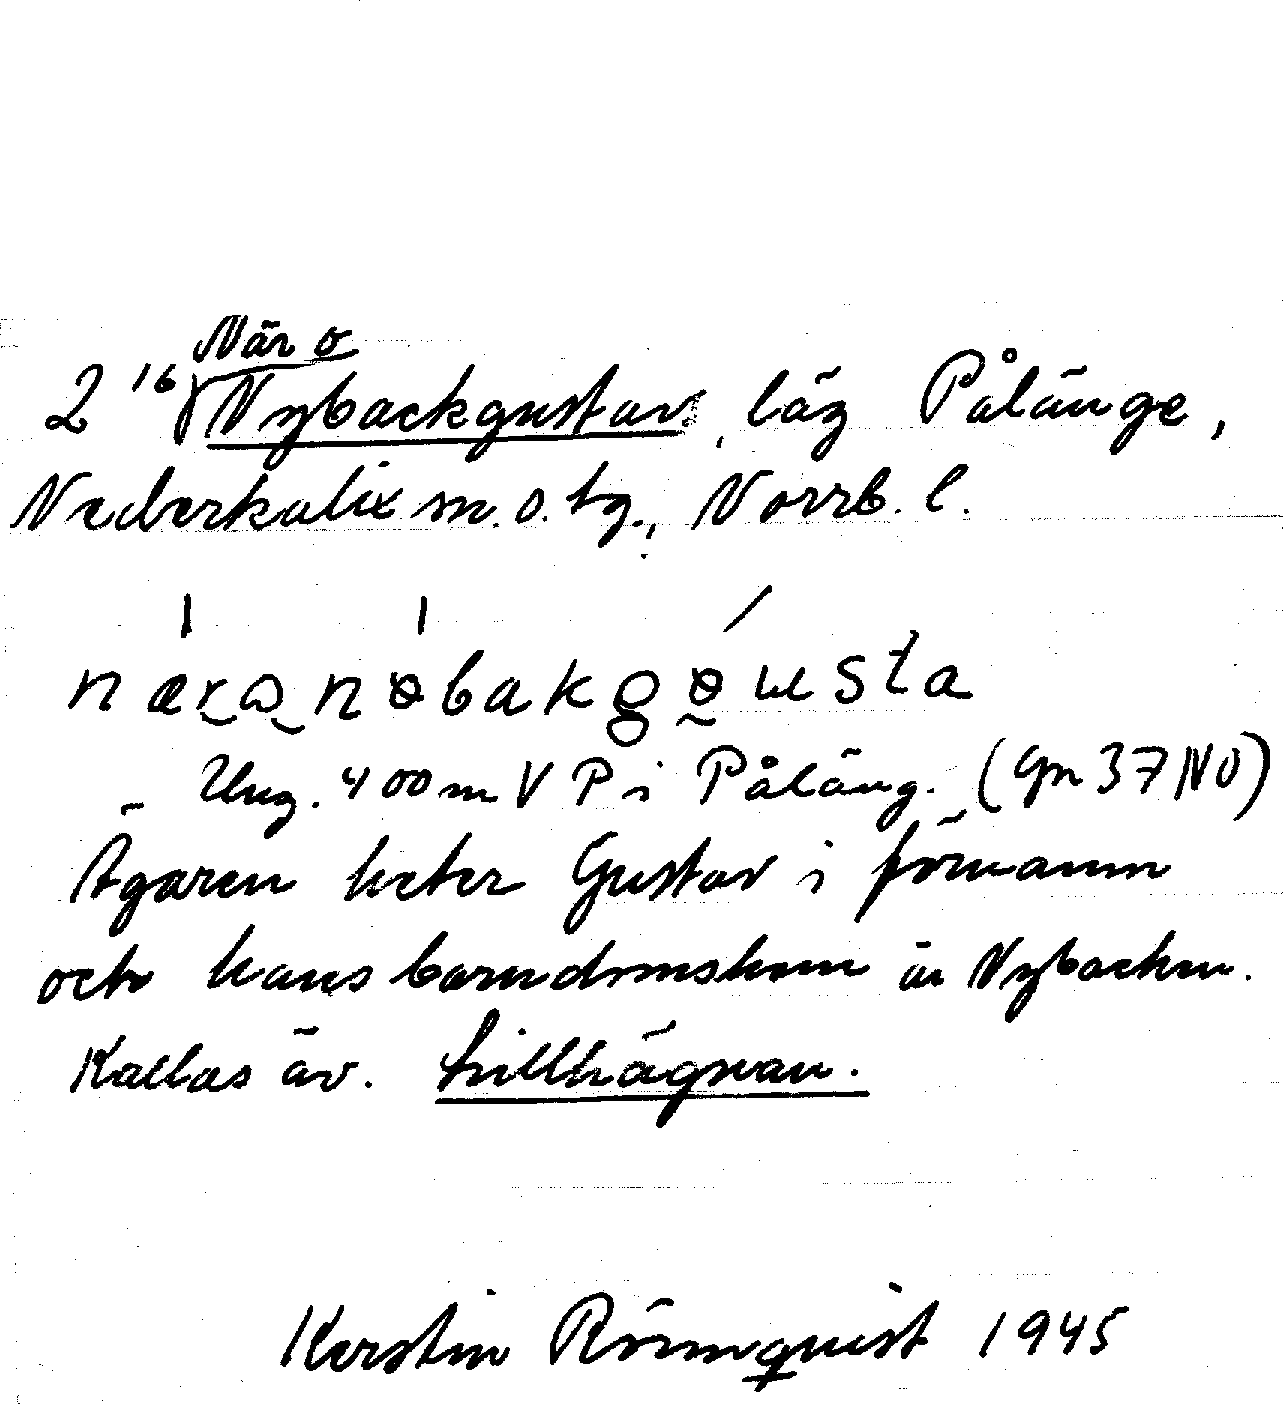 När o
2 16 Nybackgustav, läg Pålänge,
Nederkalix sn. o. tg., Norrb. l.
næranøbakgøusta
Ung. 400 m V P i Påläng. (Gn 37 NV)
Ägaren heter Gustav i förnamn
och hans barndomshem är Nybacken.
Kallas äv. Lillhägnan.
Kerstin Römquist 1945